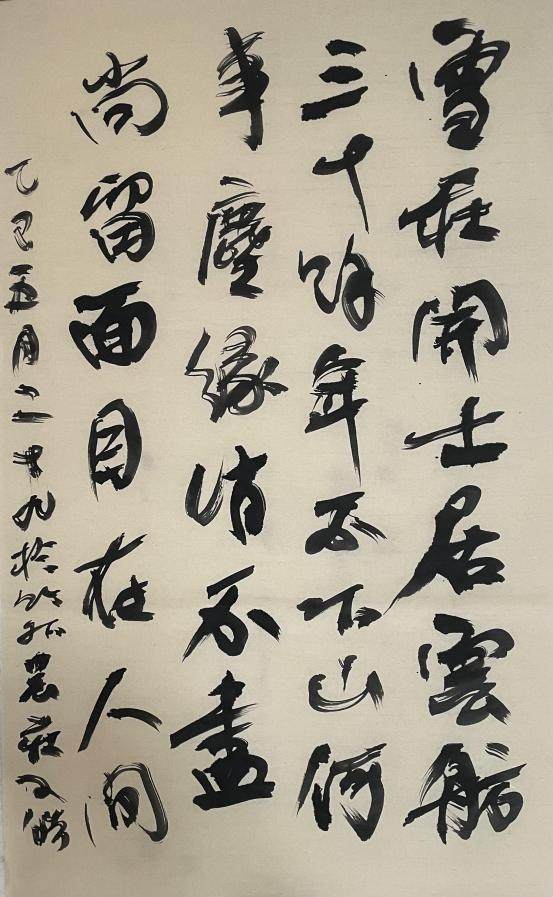 雪莊開士居雲舫
三十餘年不下山何
事塵緣消不盡
尚留面目在人間
乙巳五月二十九於北農莊